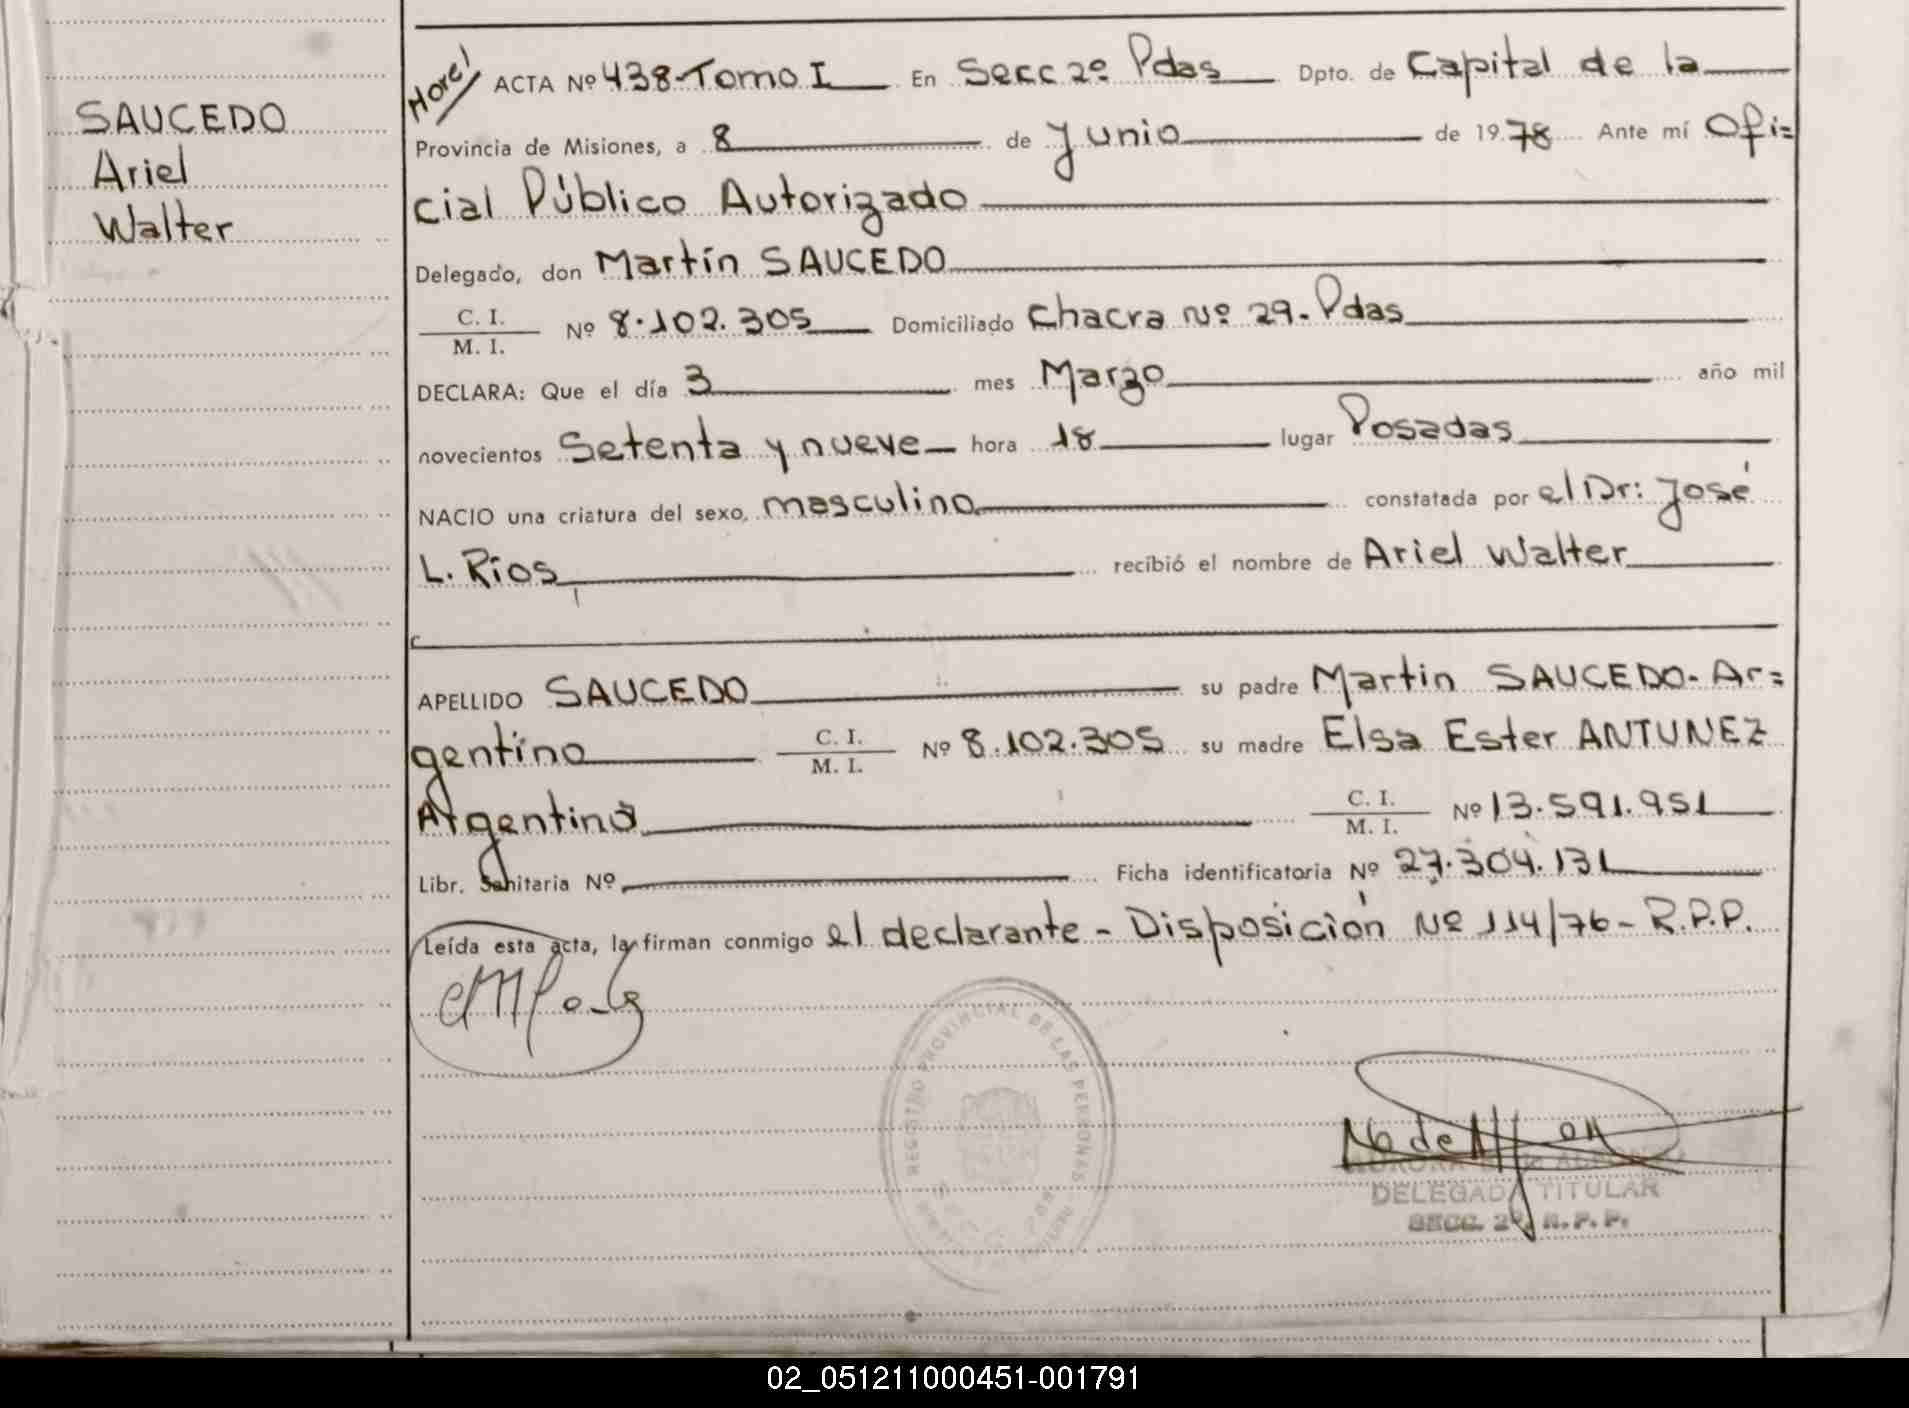 SAUCEDO
Ariel
Walter
ACTA Nº 438-Tomo I En Secc 2º Pdas Dpto. de Capital de la
Provincia de Misiones, a 8 de Junio de 1978 Ante mí Ofi=
cial Público Autorizado
Delegado, don Martín SAUCEDO
C. I.
M. I. Nº 8.102.305 Domiciliado Chacra Nº 29. Pdas
DECLARA: Que el día 3 mes Marzo año mil
novecientos Setenta y nueve hora 18 lugar Posadas
NACIO una criatura del sexo, masculino constatada por el Dr: José
L. Ríos recibió el nombre de Ariel Walter
APELLIDO SAUCEDO su padre Martin SAUCEDO- Ar=
gentino C. I.
M. I. Nº 8.102.305 su madre Elsa Ester ANTUNEZ
Argentina C. I.
M. I. Nº 13.591.951
Libr. Sanitaria Nº Ficha identificatoria Nº 27.304.131
Leída esta acta, la firman conmigo el declarante - Disposición Nº 114/76- R.P.P.
REGISTRO PROVINCIAL DE LAS PERSONAS
DELEGADA TITULAR
SECC. 2ª, R. P. P.
02_051211000451-001791